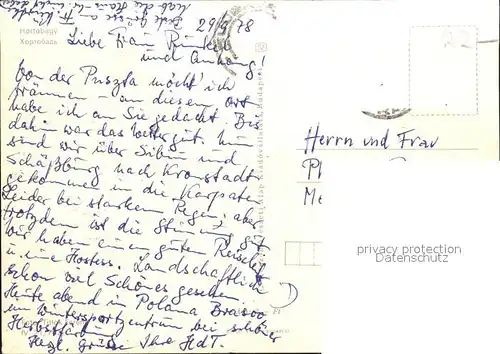 Hortobágy
Хортобадь
29/9 78
Liebe Frau Runkel
und Anhang!
Von der Puszta möcht' ich
träumen – an diesen Ort
habe ich an Sie gedacht. Bis
dahin war das Wetter gut. Nun
sind wir über Sibiu und
Schäßburg nach Kronstadt
gekommen in die Karpaten
Leider bei starkem Regen, aber
trotzdem ist die Stimmung gut
Wir haben einen guten Reiseleit
u. eine Hostess. Landschaftlich
schon viel Schönes gesehen.
Heute abend in Poiana Brasov
ein Wintersportzentrum bei schöner
Herbstfärbung
Herzl. Grüsse Ihre HdT.
Herrn und Frau
privacy protection
Datenschutz